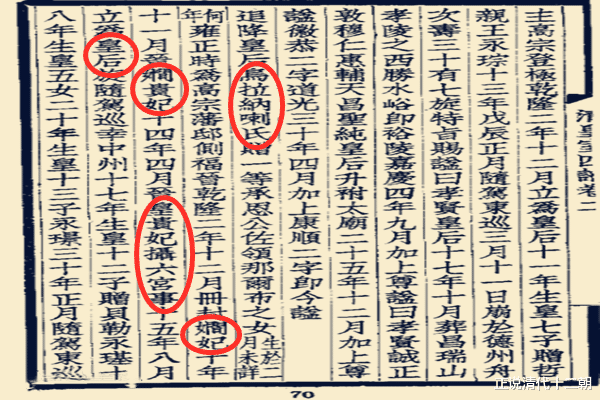 卷二
主高宗登極乾隆二年十二月立爲皇后十一年生皇七子贈哲
親王永琮十三年戊辰正月隨駕東巡三月十一日崩於德州舟
次壽三十有七旋特旨賜諡曰孝賢皇后十七年十月葬昌瑞山
孝陵之西勝水峪卽裕陵嘉慶四年九月加上尊諡曰孝賢誠正
敦穆仁惠輔天昌聖純皇后升祔太廟二十五年十二月加上尊
諡徽恭二字道光三十年四月加上康順二字卽今諡
追降皇后烏拉納喇氏贈一等承恩公佐領那爾布之女生於二月未詳
何年雍正時爲高宗藩邸側福晉乾隆二年十二月冊封嫺妃十年
十一月晉嫺貴妃十四年四月晉皇貴妃攝六宮事十五年八月
立爲皇后隨駕巡幸中州十七年生皇十二子贈貝勒永璂十
八年生皇五女二十年生皇十三子永璟三十年正月隨駕東巡
70
正说清代十二朝